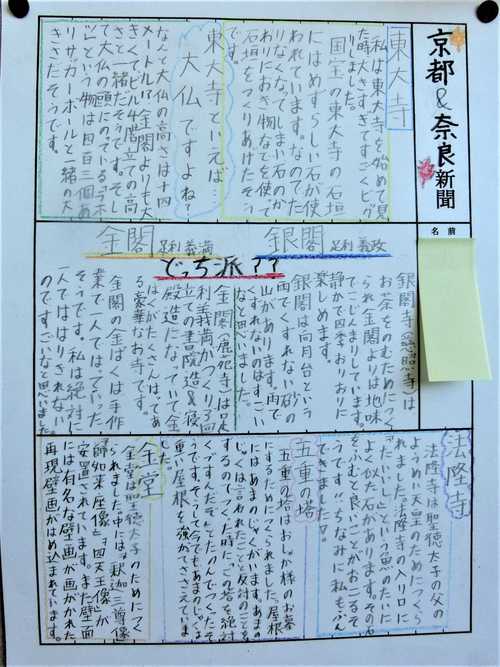 京都&奈良新聞
名前
東大寺
私は東大寺を始めて見
た時大きすぎてすごくビック
リしました。
国宝の東大寺の石垣
にはめずらしい石が使
われています。なのでた
りなくなってしまい石のか
わりにおき物などを使って
石垣をつくりあげたそう
です。
東大寺といえば…
大仏ですよね?
なんと大仏の高さは十四
メートル!?金閣よりも大
きくてビル4階立ての高
さと一緒だそうです。そし
て大仏の頭にのっている「ホ
リ」という物は四百三個あ
りサッカーボールと一緒の大
きさだそうです。
銀閣 足利義政
金閣 足利義満
どっち派??
銀閣寺(慈照寺)は
お茶をのむためにつく
られ金閣よりは地味
でこじんまりしています。
静かで四季おりおりに
楽しめます。
銀閣は向月台という
雨でくずれない砂の
山があります。雨で
くずれないのはすごい
なと思いました。
金閣(鹿苑寺)は足
利義満がつくり3回
立ての書院造&後
殿造になっていて金
ぱくがたくさんはってあ
る豪華なお寺です。
金閣の金ぱくは手作
業で一人ではっていった
そうです。私は絶対に
一人でははりきれない
のですごいなと思いました。
法隆寺
法隆寺は聖徳太子の父の
ようめい天皇のためにつくら
れました。法隆寺の入り口に
「たいいし」という魚のたいに
よく似た石があります。その石
をふむと良いことがおこるそ
うです!!ちなみに私もふん
できました♡。
五重の塔
五重の塔はおしゃか様のお墓
にするためにつくられました。屋根
にはあまのじゃくがいます。あまの
じゃくは言われたことと反対のことを
するのでつくった時に「この塔を絶対
くずすんだぞ」とたのんでつくったそ
うです。そうして今でもあまのじゃくは
重い屋根を強がてささえています。
金堂
金堂は聖徳太子のためにつく
られました中には「釈迦三尊像」
「師如来座像」「四天王像」が
安置されています。また壁面
には有名な壁画が画かれた
再現壁画がはめ込まれています。